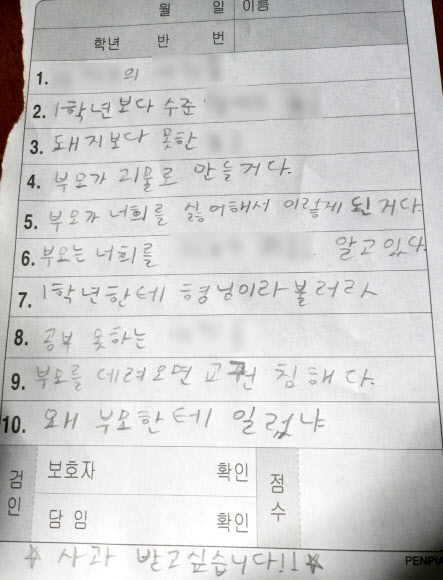 월 일 이름
학년 반 번
1. 의
2. 1학년보다 수준
3. 돼지보다 못한
4. 부모가 괴물로 만들거다.
5. 부모가 너희를 싫어해서 이렇게 된거다
6. 부모는 너희를 알고있다
7. 1학년한테 형님이라 불러라
8. 공부 못하는
9. 부모를 데려오면 교권 침해다.
10. 왜 부모한테 일렀냐
검인 보호자 확인 점수
담임 확인
☆ 사과 받고싶습니다!! ☆